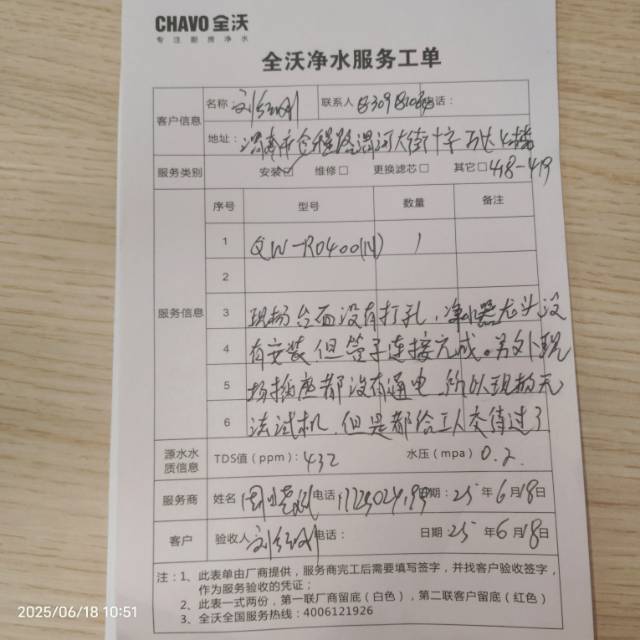 CHAVO 全沃
专注厨房净水
全沃净水服务工单
客户信息 名称 联系人 话：
地址： 渭南市 渭河大街十字万达 楼
服务类别 安装☑ 维修□ 更换滤芯□ 其它□ 418-419
序号 型号 数量 备注
1 QW-RO400(N) 1
2
服务信息
3 现场台面没有打孔，净水器龙头没
4 有安装但管子连接完成。另外现
5 场插座都没有通电，所以现场无
6 法试机，但是都给工人交待过了
源水水质信息 TDS值（ppm）：432 水压（mpa）0.2
服务商 姓名 电话 期：25年6月18日
客户 验收人 电话： 日期：25年6月18日
注：1、此表单由厂商提供，服务商完工后需要填写签字，并找客户验收签字，
作为服务验收的凭证；
2、此表一式两份，第一联厂商留底（白色），第二联客户留底（红色）
3、全沃全国服务热线：4006121926
2025/06/18 10:51